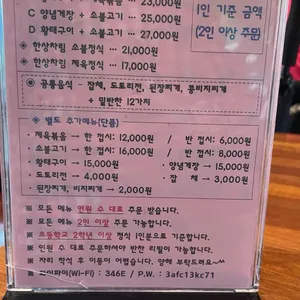 23,000원
C 양념게장 + 소불고기 ··· 25,000원
D 황태구이 + 소불고기 ··· 27,000원
1인 기준 금액
(2인 이상 주문)
※ 한상차림 소불정식 ··· 21,000원
※ 한상차림 제육정식 ··· 17,000원
◉ 공통음식 - 잡채, 도토리전, 된장찌개, 콩비지찌개
+ 밑반찬 12가지
◈ 별도 추가메뉴(단품)
· 제육볶음 → 한 접시: 12,000원 / 반 접시: 6,000원
· 소불고기 → 한 접시: 16,000원 / 반 접시: 8,000원
· 황태구이 → 15,000원 · 양념게장 → 15,000원
· 도토리전 → 4,000원 · 잡 채 → 3,000원
· 된장찌개, 비지찌개 → 2,000원
※ 모든 메뉴 인원 수 대로 주문 받습니다.
※ 모든 메뉴 2인 이상 주문 가능합니다.
※ 초등학교 2학년 이상 정식 1인분으로 기준합니다.
※ 인원 수 대로 주문하셔야 반찬 리필이 가능합니다.
※ 자리 착석 후 이동이 어렵습니다. 양해 부탁드려요~^^
와이파이(Wi-Fi) : 346E / P.W. : 3afc13kc71